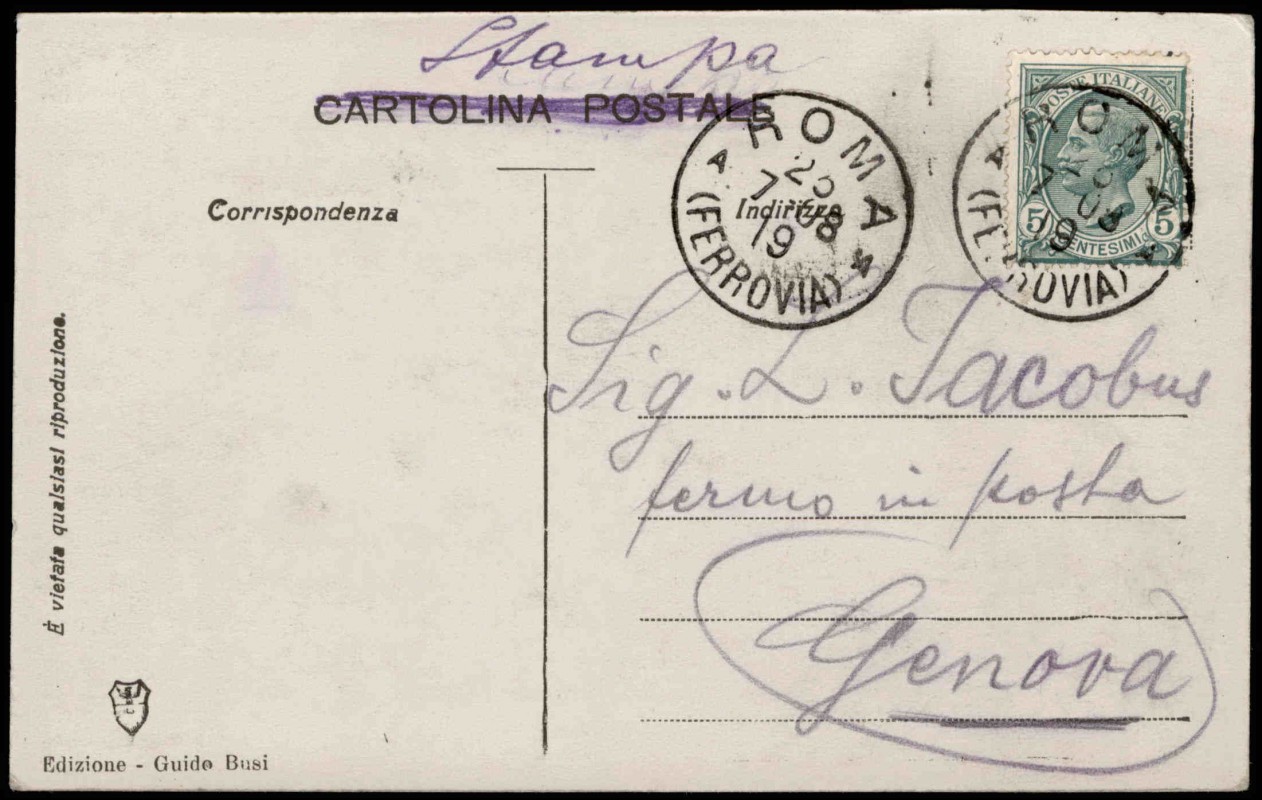 Stampa
CARTOLINA POSTALE
POSTE ITALIANE
5 CENTESIMI 5
ROMA
25
7 08
19
(FERROVIA)
ROMA
(FERROVIA)
Corrispondenza
Indirizzo
Sig. L. Jacobus
fermo in posta
Genova
È vietata qualsiasi riproduzione.
Edizione - Guido Busi